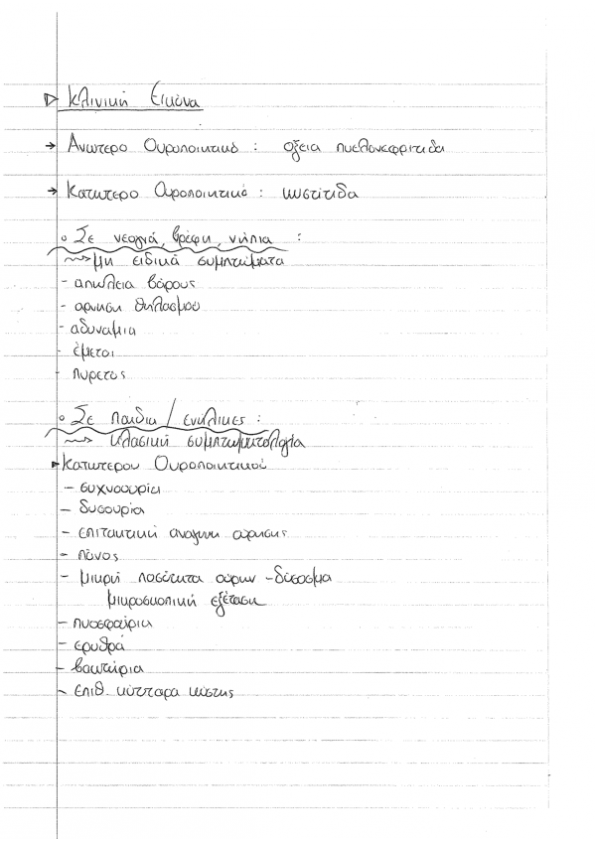 ▷ Κλινική Εικόνα
→ Ανωτερο Ουροποιητικό : οξεια πυελονεφριτιδα
→ Κατωτερο Ουροποιητικό : κυστίτιδα
◦ Σε νεογνά, βρέφη, νήπια :
⇝ μη ειδικά συμπτώματα
- απώλεια βάρους
- αρνηση θηλασμού
- αδυναμια
- έμετοι
- πυρετος
◦ Σε παιδια / ενηλικες :
⇝ κλασική συμπτωματολογία
▸ Κατωτερου Ουροποιητικού
- συχνοουρία
- δυσουρία
- επιτακτική αναγκη ούρησης
- πόνος
- μικρή ποσότητα ούρων - δύσοσμα
μικροσκοπική εξέταση
- πυοσφαίρια
- ερυθρά
- βακτήρια
- επιθ. κύτταρα κύστης